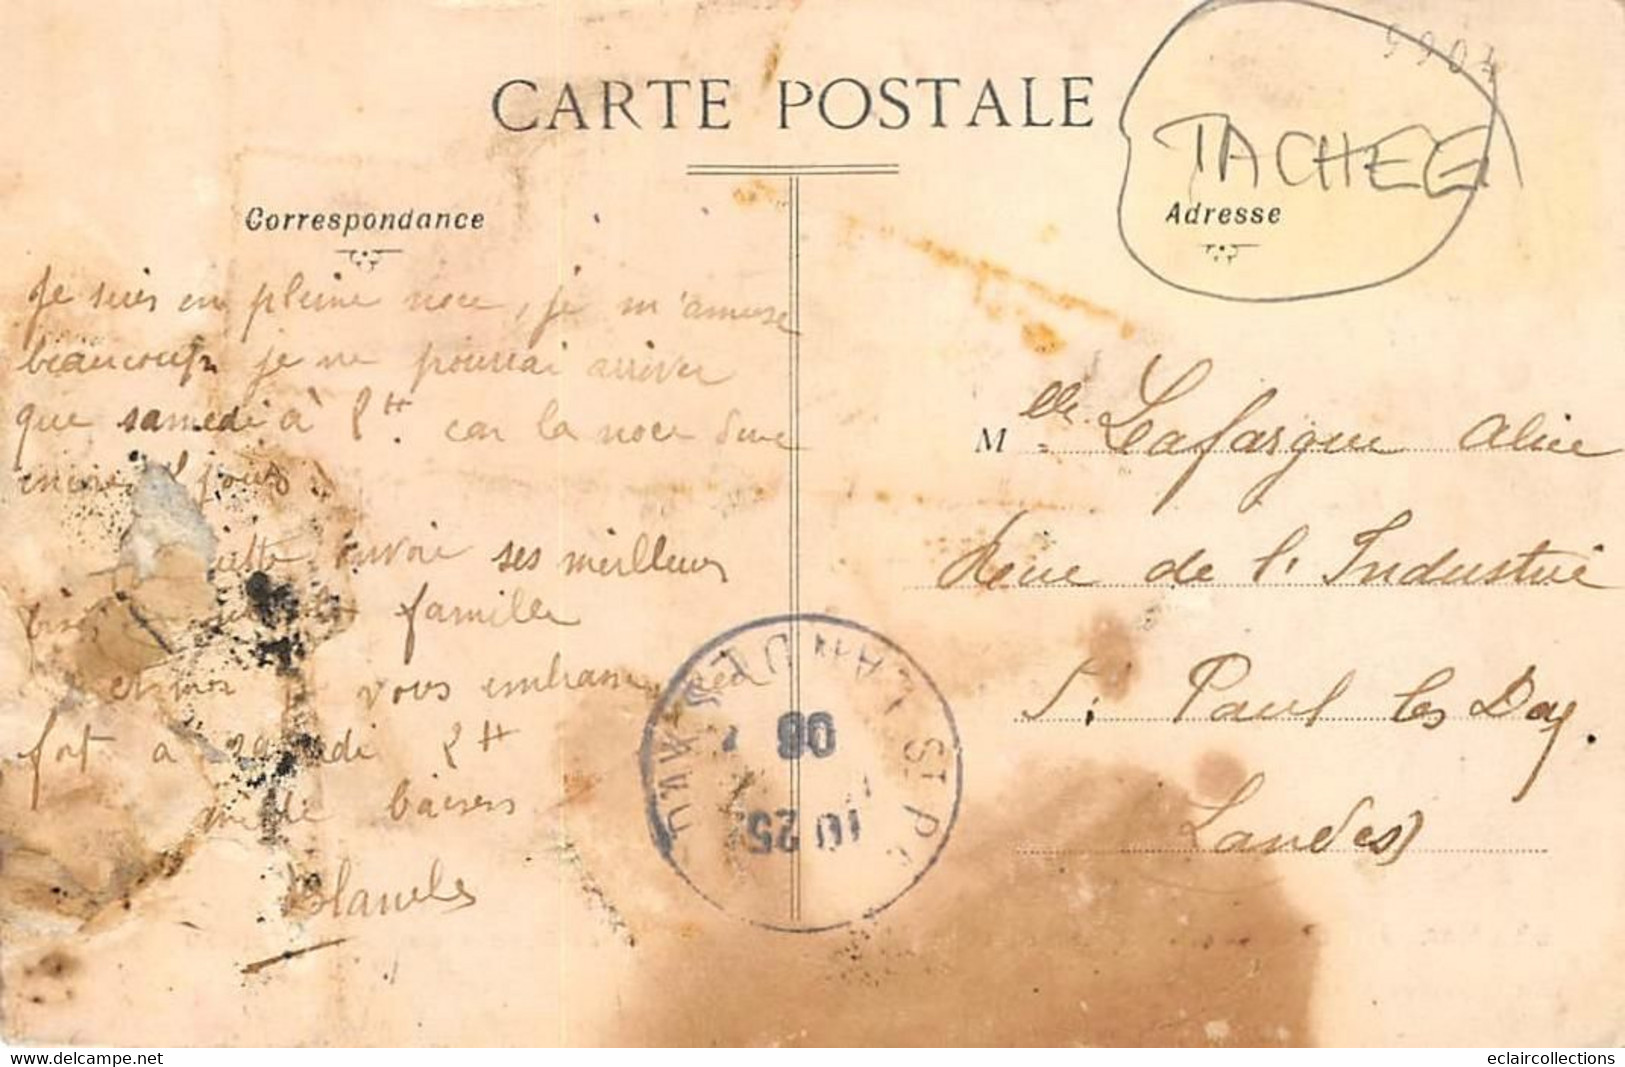 CARTE POSTALE
9904
TACHEE
Correspondance
Je suis en pleine noce, je m'amuse
beaucoup je ne pourrai arriver
que samedi à 8H. car la noce dure
encore jours
envoie ses meilleurs
famille
et moi vous embrasse
fort à samedi 8H
mille baisers
Adresse
Mlle Lafargue Alice
Rue de l'Industrie
St Paul les Dax.
Landes
ST P LANDES
25
08
www.delcampe.net
eclaircollections